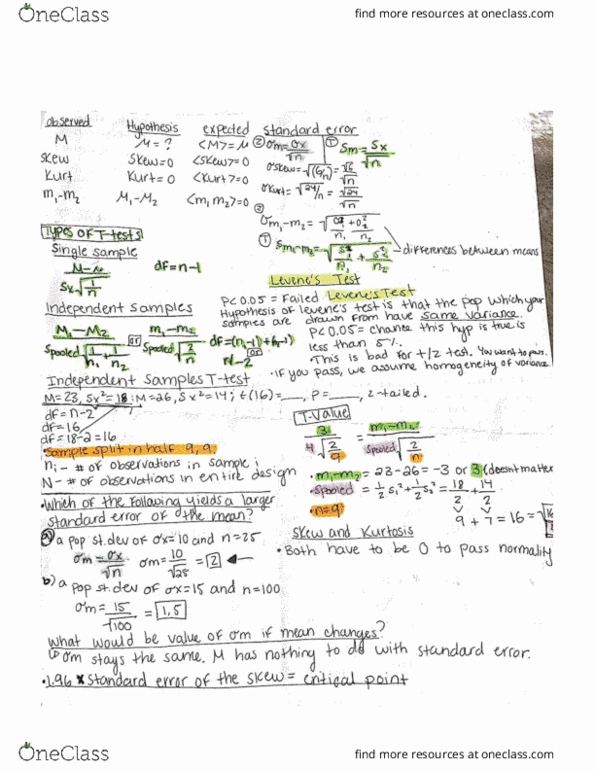 OneClass
find more resources at oneclass.com
observed Hypothesis expected standard error
M M = ? <M> = μ ② σm = σx/√n ① Sm = Sx/√n
Skew Skew = 0 <Skew> = 0 σskew = √(6/n) = √6/√n
Kurt Kurt = 0 <Kurt> = 0 σkurt = √24/n = √24/√n
m₁-m₂ M₁-M₂ <m₁ m₂> = 0 ② σm₁-m₂ = √σ₁²/n₁ + σ₂²/n₂
① Sm₁-m₂ = √s₁²/n₁ + s₂²/n₂ - differences between means
Types of T-tests
Single sample
M-μ / Sx√1/n df = n-1
Levene's Test
P<0.05 = Failed Levene's Test
Hypothesis of levene's test is that the pop which your
samples are drawn from have same variance.
P<0.05 = chance this hyp is true is
less than 5%.
This is bad for t/z test. You want to pass.
• If you pass, we assume homogeneity of variance
Independent Samples
M₁-M₂ / Spooled√1/n₁ + 1/n₂ or m₁-m₂ / Spooled√2/n df = (n₁-1)+(n₂-1) or N-2
Independent Samples T-test
M=23, Sx²=18 : M=26, Sx²=14; t(16)=___, P=___, 2-tailed.
df = n-2
df = 16
df = 18-2 = 16
• Sample split in half 9, 9.
ni - # of observations in sample i
N - # of observations in entire design
T-Value
3 / 4√2/9 = m₁-m₂ / Spooled√2/n
• m₁-m₂ = 23-26 = -3 or 3 (doesnt matter
• Spooled = ½ s₁² + ½ s₂² = 18/2 + 14/2
9 + 7 = 16 = √16
• n=9
• Which of the following yields a larger
standard error of the mean?
a) a pop st.dev of σx=10 and n=25
σm = σx/√n σm = 10/√25 = 2
b) a pop st.dev of σx=15 and n=100
σm = 15/√100 = 1.5
Skew and Kurtosis
• Both have to be 0 to pass normality
What would be value of σm if mean changes?
↳ σm stays the same. M has nothing to do with standard error.
• 1.96 × standard error of the skew = critical point
OneClass
find more resources at oneclass.com